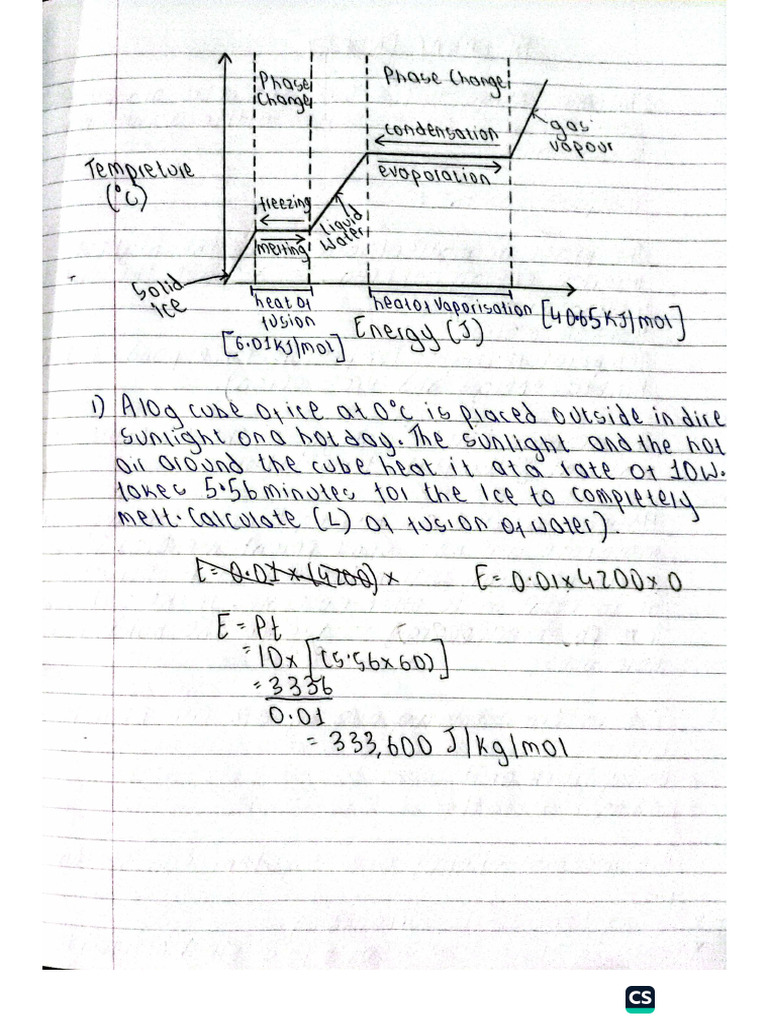 Phase Change
Phase Change
condensation
evaporation
gas vapour
Tempreture (°C)
freezing
melting
liquid water
Solid Ice
heat of fusion
[6.01KJ/mol]
heat of vaporisation [40.65KJ/mol]
Energy (J)
1) A 10g cube of ice at 0°C is placed outside in dire
sunlight on a hot day. The sunlight and the hot
air around the cube heat it at a rate of 10W.
takes 5.56 minutes for the Ice to completely
melt. Calculate (L) of fusion of water).
E = 0.01 x (4200) x
E = 0.01 x 4200 x 0
E = Pt
= 10 x [(5.56 x 60)]
= 3336
0.01
= 333,600 J/kg/mol
CS